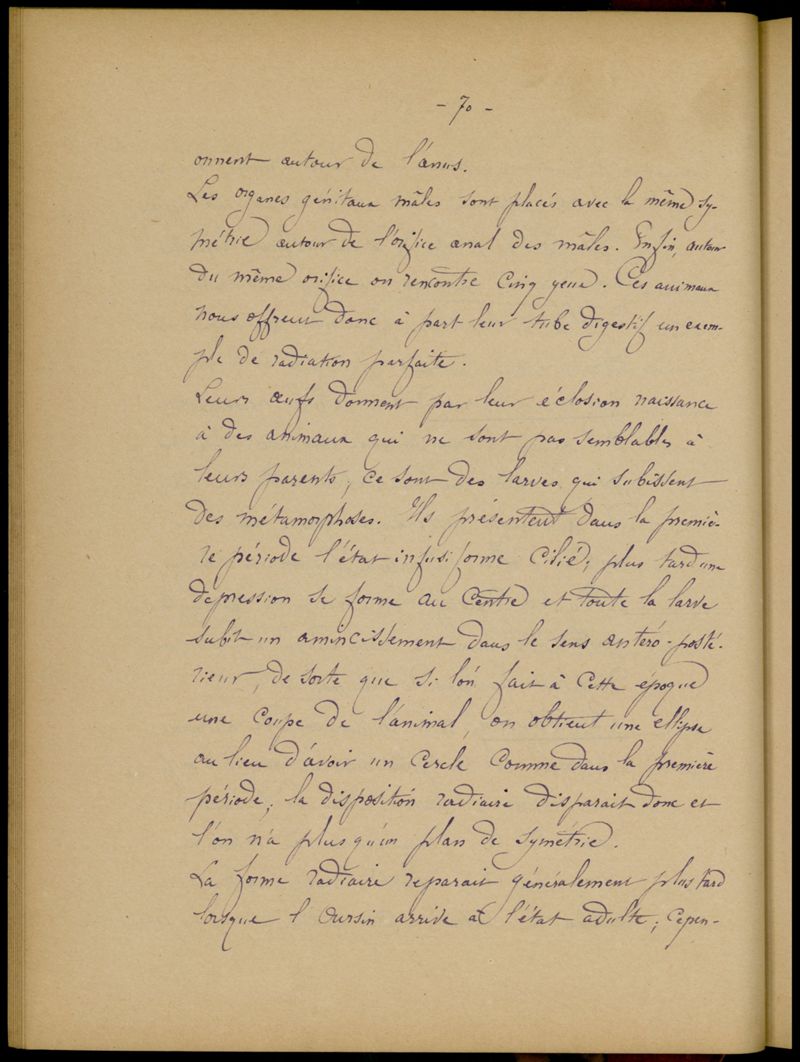 - 70 -
onnent autour de l'anus.
Les organes génitaux mâles sont placés avec la même sy-
métrie autour de l'orifice anal des mâles. Enfin, autour
du même orifice on rencontre cinq yeux. Ces animaux
nous offrent donc à part leur tube digestif un exem-
ple de radiation parfaite.
Leurs œufs donnent par leur éclosion naissance
à des animaux qui ne sont pas semblables à
leurs parents, ce sont des larves qui subissent
des métamorphoses. Ils présentent dans la premiè-
re période l'état infusiforme cilié; plus tard une
dépression se forme au centre et toute la larve
subit un amincissement dans le sens antéro-posté-
rieur, de sorte que si l'on fait à cette époque
une coupe de l'animal, on obtient une ellipse
au lieu d'avoir un cercle comme dans la première
période; la disposition radiaire disparait donc et
l'on n'a plus qu'un plan de symétrie.
La forme radiaire reparait généralement plus tard
lorsque l'Oursin arrive à l'état adulte; cepen-